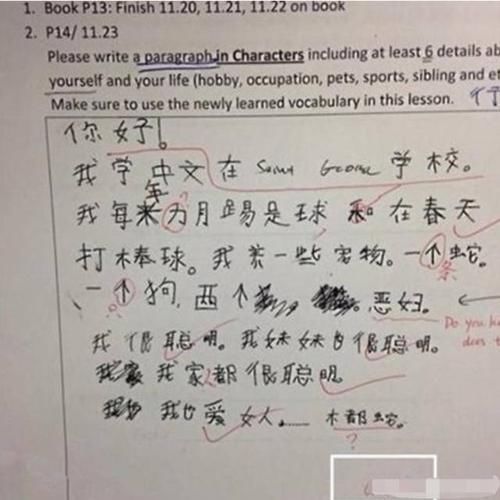 1. Book P13: Finish 11.20, 11.21, 11.22 on book
2. P14/ 11.23
Please write a paragraph in Characters including at least 6 details ab
yourself and your life (hobby, occupation, pets, sports, sibling and et
Make sure to use the newly learned vocabulary in this lesson.
你好!
我学中文在 Saint George 学校。
年
我每来力月踢是球和在春天
打棒球。我养一些宠物。一个蛇。
条
一个狗,两个 恶妇。
?
Do you k
does t
我很聪明。我妹妹也很聪明。
我家都很聪明
我也爱女人…… 木都蛇。
?